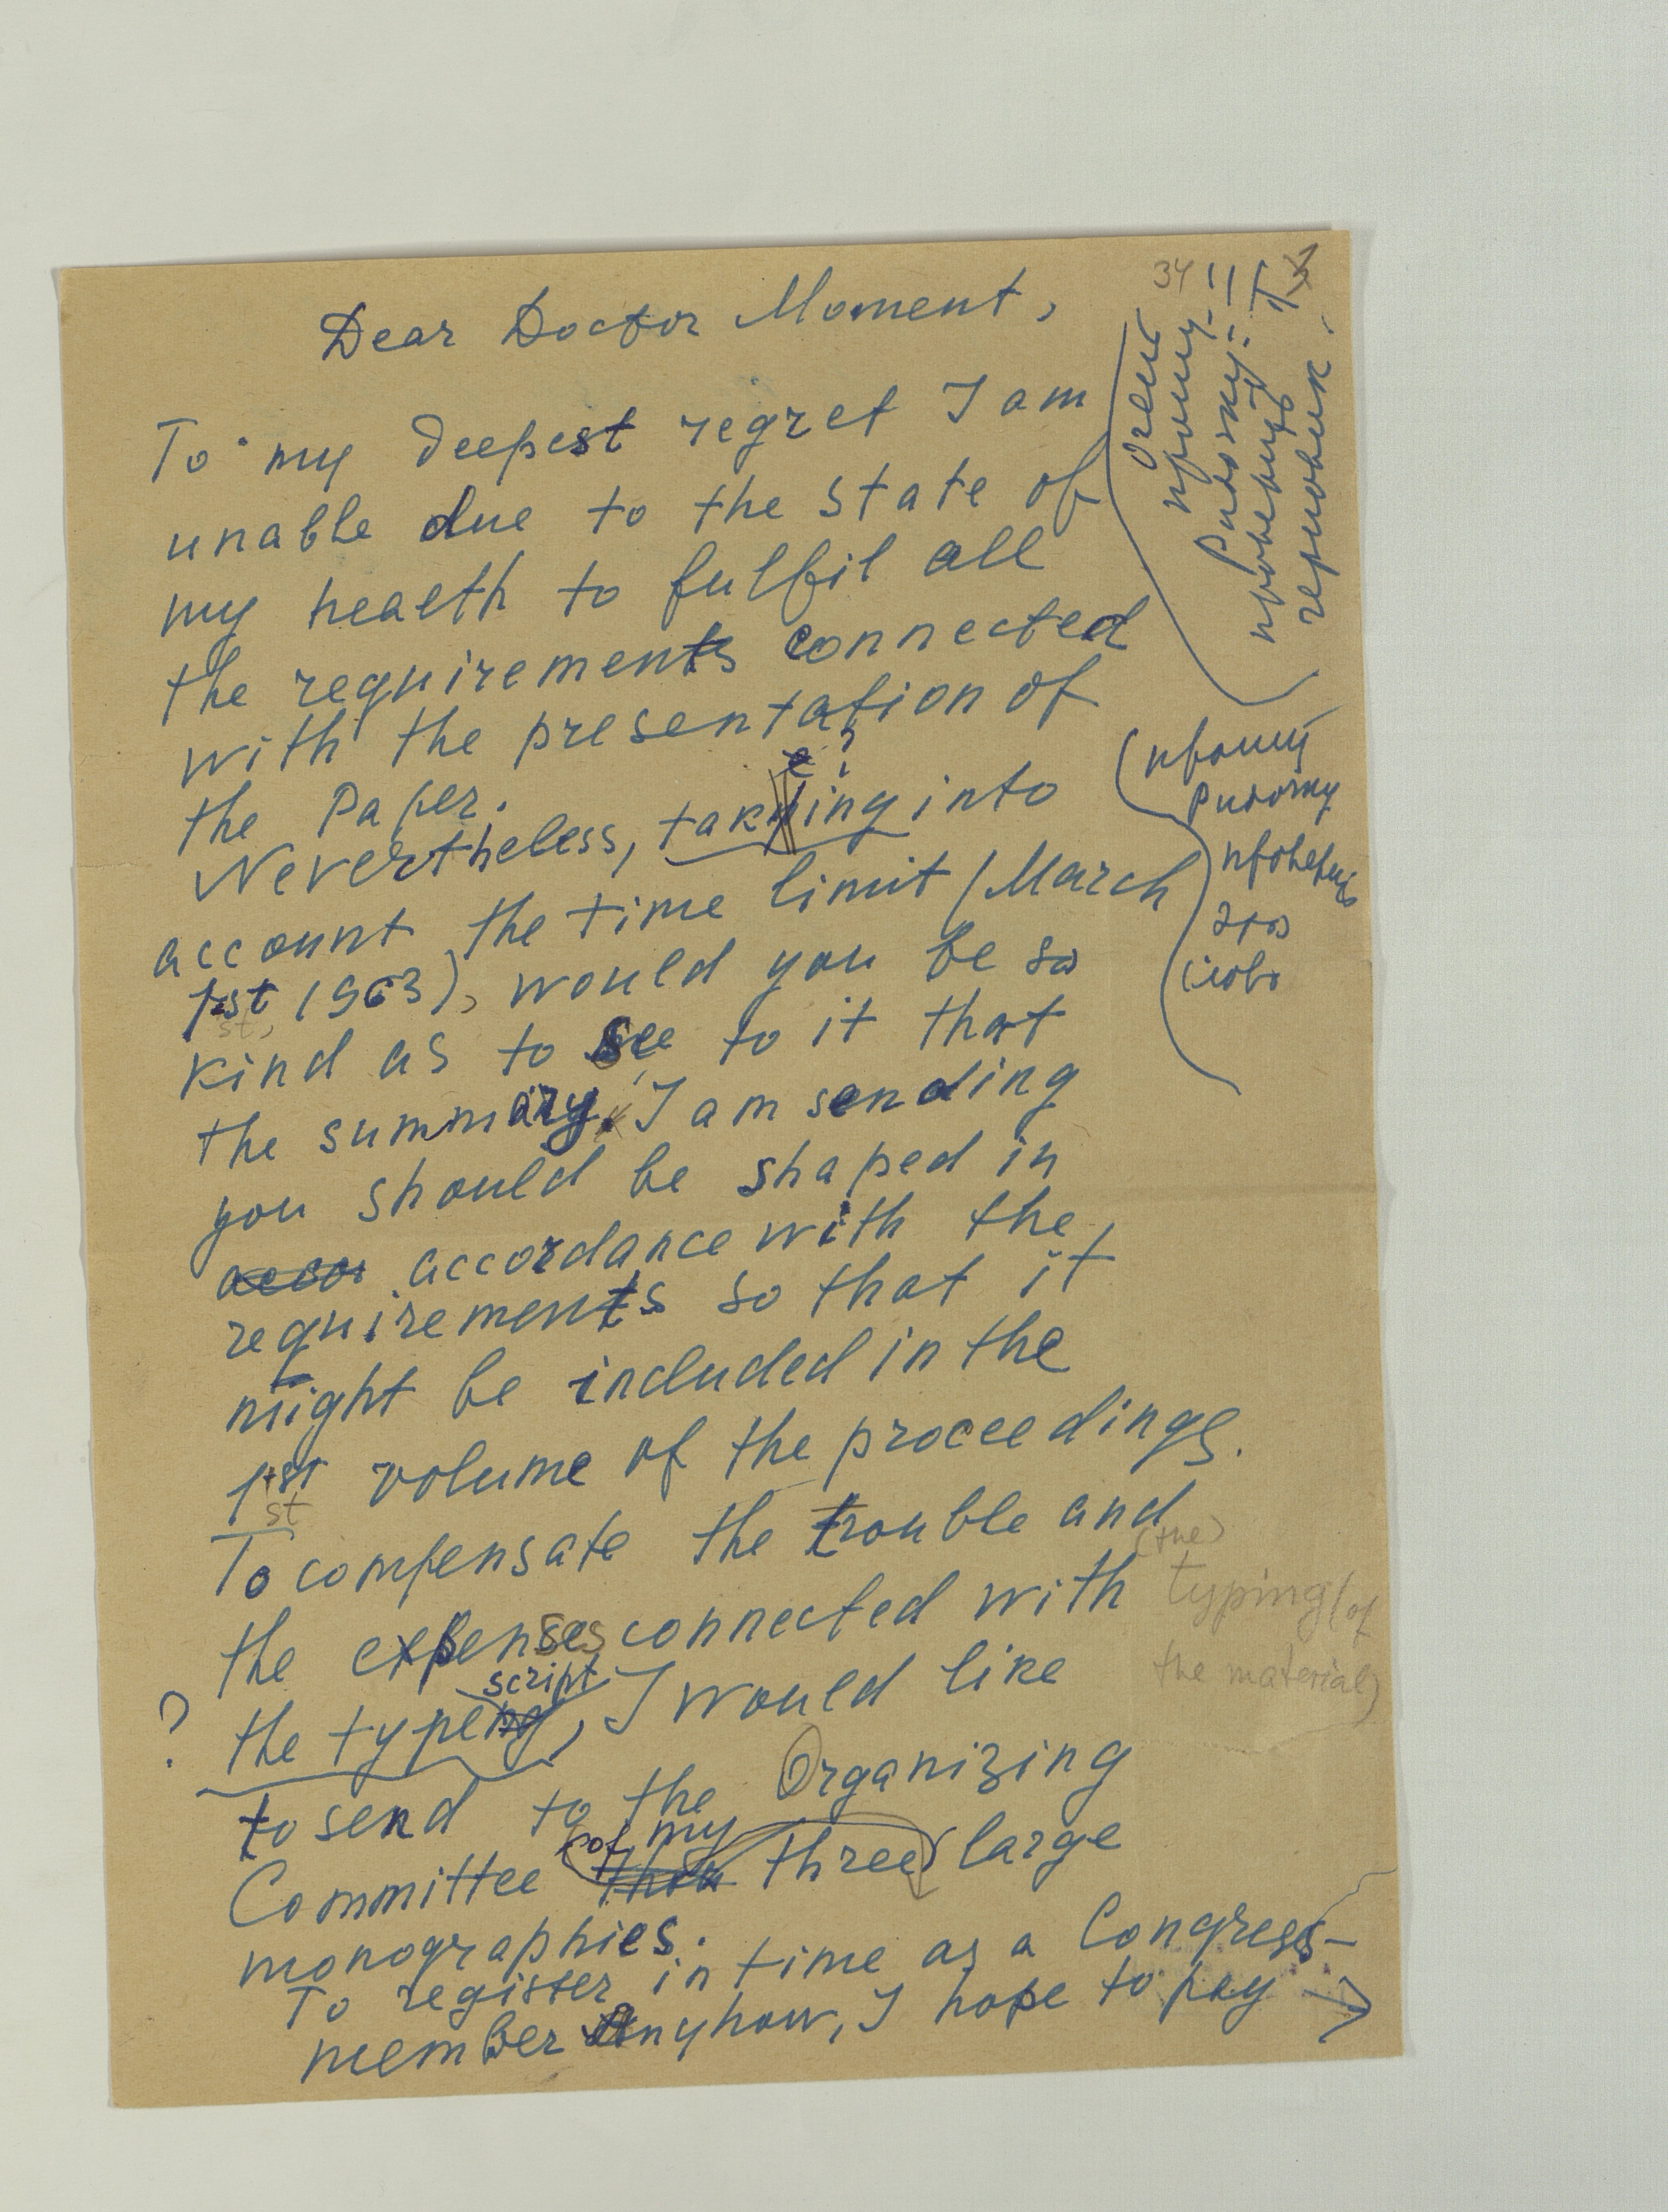 34
Dear Doctor Moment,
To my deepest regret I am
unable due to the state of
my health to fulfil all
the requirements connected
with the presentation of
the Paper.
e?
Nevertheless, taking into
account the time limit (March
1st 1963), would you be so
st,
kind as to see to it that
the summary, I am sending
you should be shaped in
accor accordance with the
requirements so that it
might be included in the
1st volume of the proceedings.
st
To compensate the trouble and
(the)
the expenses connected with typing (of
script
the material)
? the typing, I would like
to send to the Organizing
of my
Committee three large
monographies.
To register in time as a Congress-
member Anyhow, I hope to pay →
Очень
прошу
проверить
черновик.
(прошу
проверить
это
слово